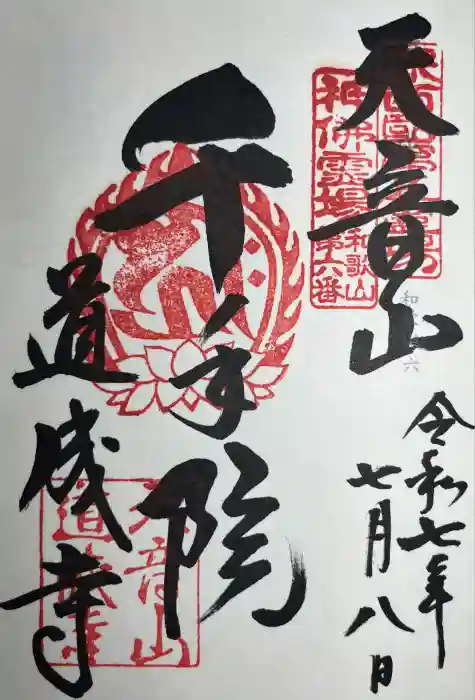 天音山
千手院
道成寺
令和七年
七月八日
神佛霊場
和歌山
第十六番
天音山
道成寺